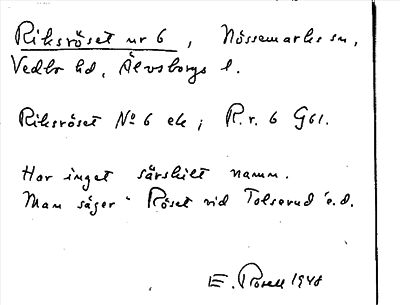 Riksröset nr 6, Nössemarks sn,
Vedbo hd, Älvsborgs l.
Riksröset No 6 ek; R.r. 6 G61.
Har inget särskilt namn.
Man säger "Röset vid Tolserud" o.d.
E. Rosell 1948